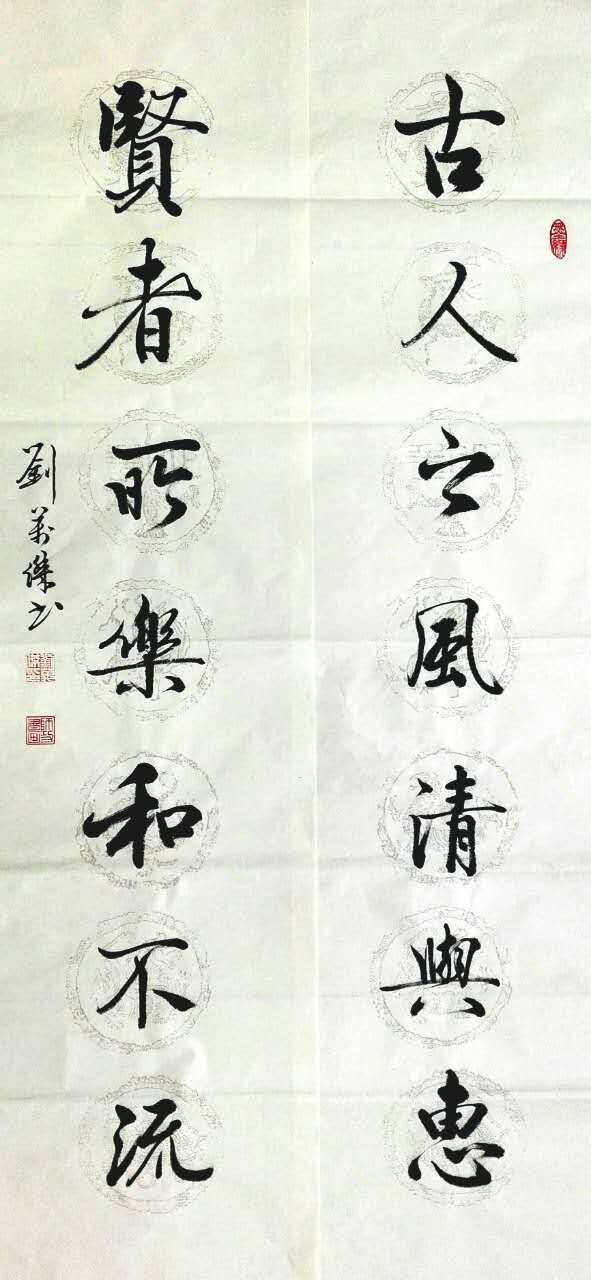 古人之風清與惠
賢者所樂和不流
劉萬傑书